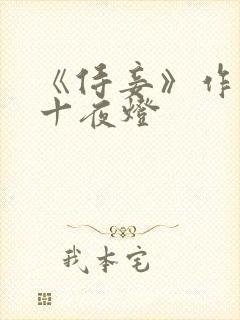 《侍妾》作
十夜燈
我本宅